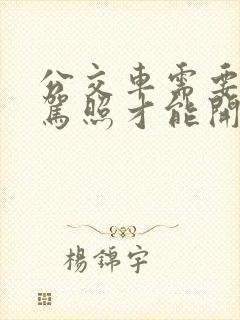 公交車需要
駕照才能開
楊錦宇